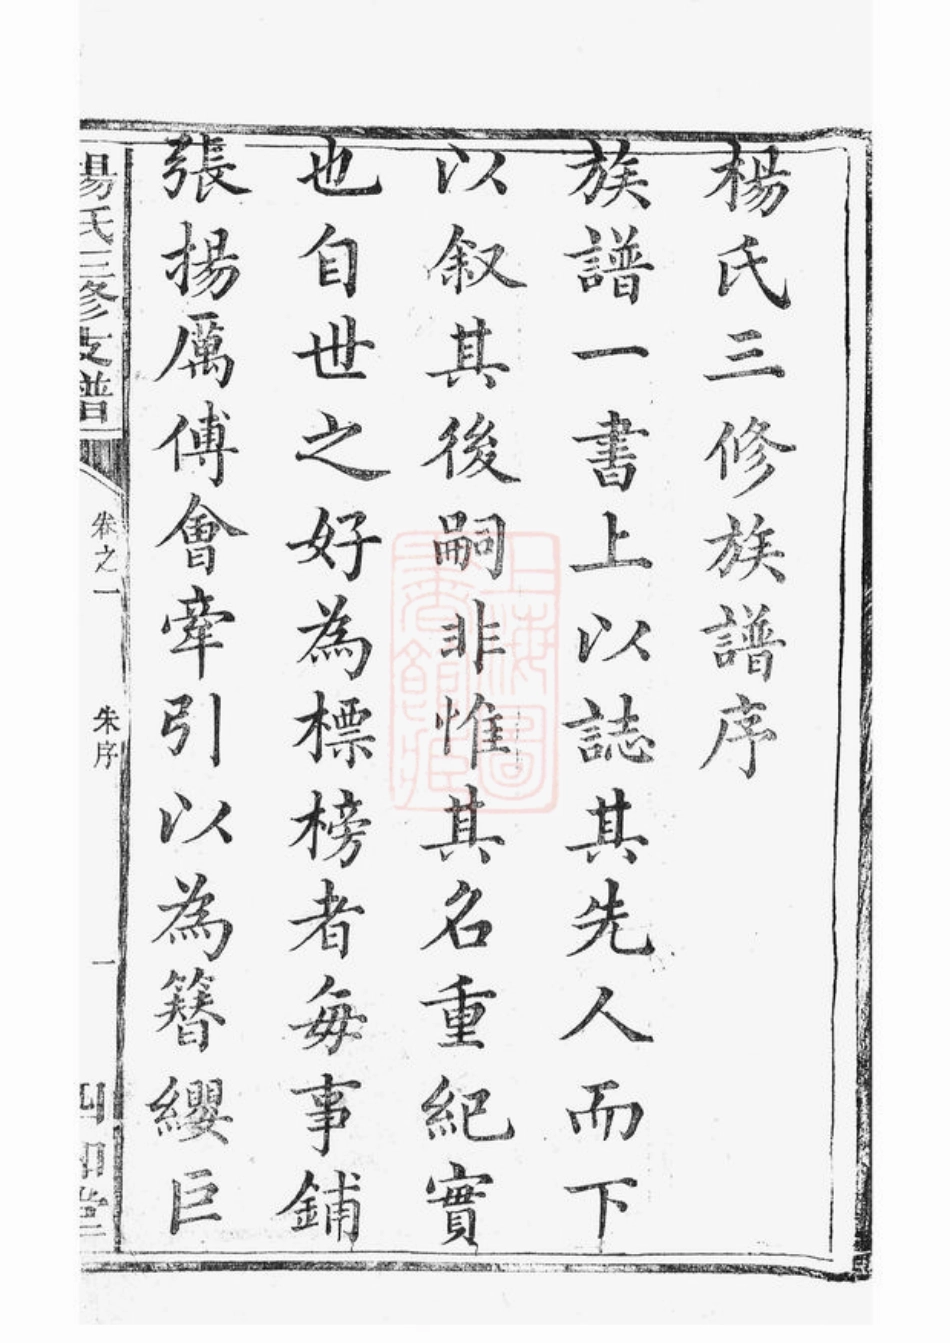 楊氏三修族譜序
族譜一書上以誌其先人而下
以叙其後嗣非惟其名重紀實
也自世之好為標榜者每事鋪
張揚厲傅會牽引以為簪纓巨
楊氏三修支譜
卷之一
朱序
一
四知堂
上海圖書館藏